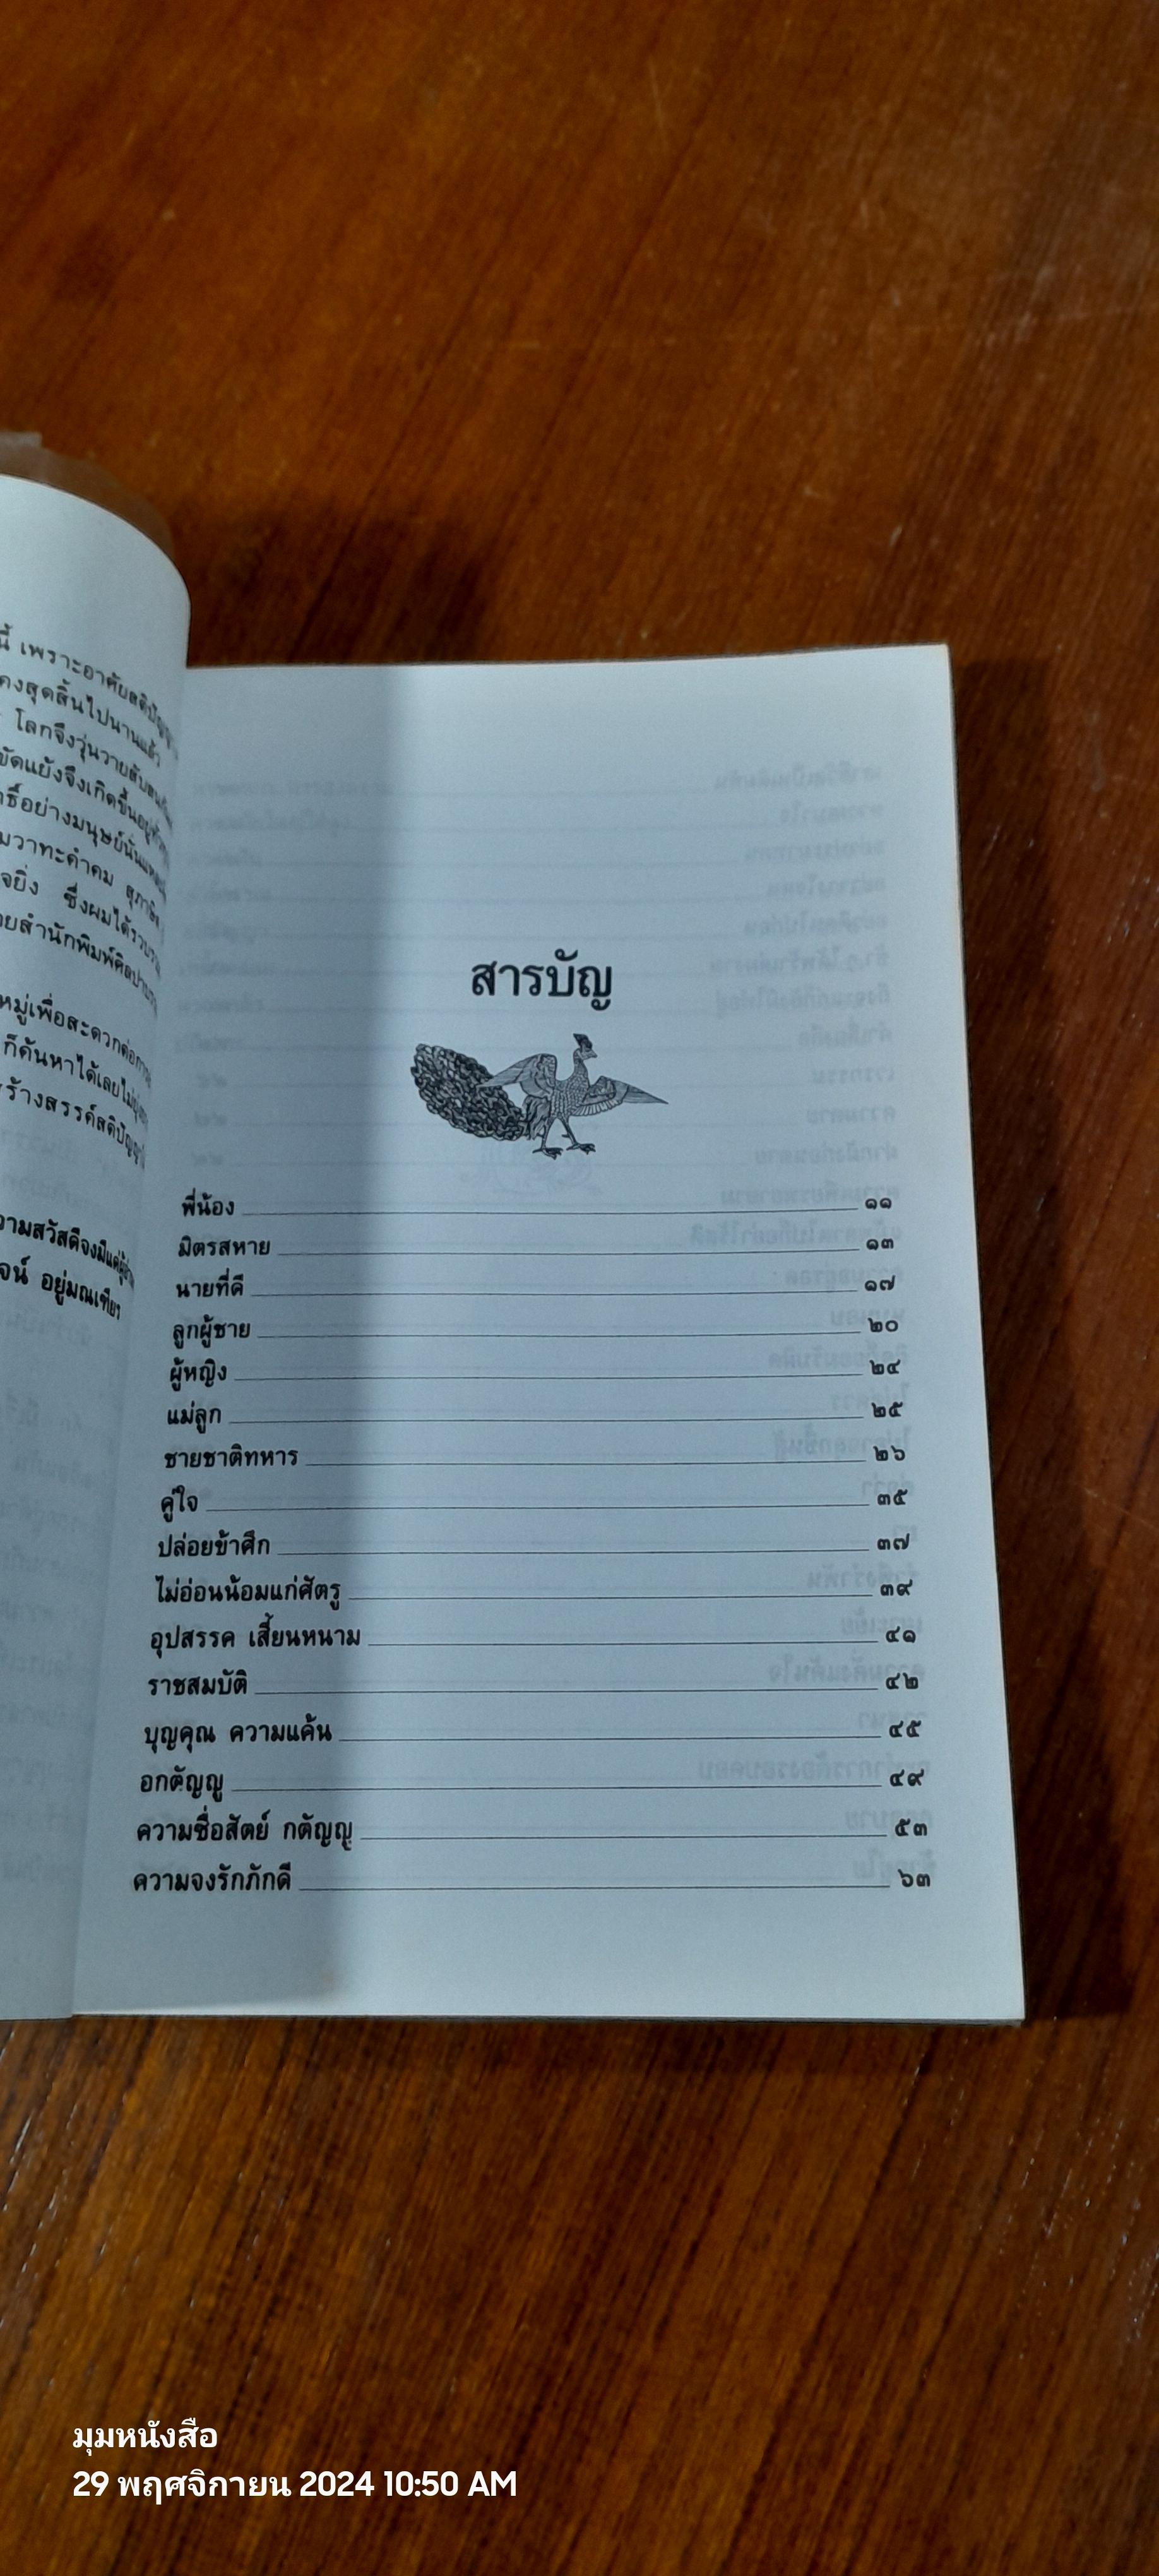 นี้ เพราะอาศัยสติปัญญา
คงสุดสิ้นไปนานแล้ว
โลกจึงวุ่นวายสับสน
ขัดแย้งจึงเกิดขึ้นอยู่
อย่างมนุษย์นั่นแหละ
วาทะคำคม สุภาษิต
ยิ่ง ซึ่งผมได้รวบรวม
สำนักพิมพ์ศิลปาบรรณ
หมู่เพื่อสะดวกต่อการ
ก็ค้นหาได้เลยไม่
สร้างสรรค์สติปัญญา
ความสวัสดีจงมีแด่ผู้อ่าน
อยู่มณเฑียร
สารบัญ
พี่น้อง ๑๑
มิตรสหาย ๑๓
นายที่ดี ๑๗
ลูกผู้ชาย ๒๐
ผู้หญิง ๒๔
แม่ลูก ๒๕
ชายชาติทหาร ๒๖
คู่ใจ ๓๕
ปล่อยข้าศึก ๓๗
ไม่อ่อนน้อมแก่ศัตรู ๓๙
อุปสรรค เสี้ยนหนาม ๔๑
ราชสมบัติ ๔๒
บุญคุณ ความแค้น ๔๕
อกตัญญู ๔๙
ความซื่อสัตย์ กตัญญู ๕๓
ความจงรักภักดี ๖๓
มุมหนังสือ
29 พฤศจิกายน 2024 10:50 AM